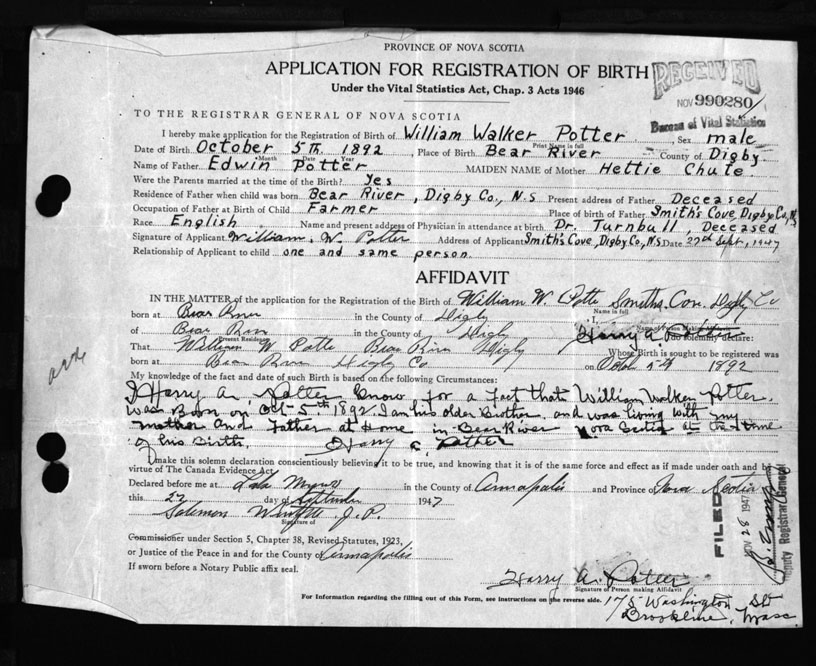 PROVINCE OF NOVA SCOTIA
APPLICATION FOR REGISTRATION OF BIRTH
RECEIVED
Under the Vital Statistics Act, Chap. 3 Acts 1946
NOV 990280
Bureau of Vital Statistics
TO THE REGISTRAR GENERAL OF NOVA SCOTIA
I hereby make application for the Registration of Birth of William Walker Potter Sex male
Print Name in full
Date of Birth October 5th. 1892, Place of Birth Bear River County of Digby
Month Date Year
Name of Father Edwin Potter MAIDEN NAME of Mother Hettie Chute.
Were the Parents married at the time of the Birth? Yes
Residence of Father when child was born Bear River, Digby Co., N.S Present address of Father Deceased
Occupation of Father at Birth of Child Farmer Place of birth of Father Smith's Cove, Digby Co, N.S
Race English. Name and present address of Physician in attendance at birth Dr. Turnbull, Deceased
Signature of Applicant William. W. Potter Address of Applicant Smith's Cove, Digby Co, N.S. Date 22nd Sept, 1947
Relationship of Applicant to child one and same person.
AFFIDAVIT
IN THE MATTER of the application for the Registration of Birth of William W. Potter Smiths Cove Digby Co
Name in full
born at Bear River in the County of Digby I,
of Bear River in the County of Digby Harry A. Potter do solemnly declare:
Present Residence Name of Person Making Affidavit
That William W Potter Bear River Digby Whose Birth is sought to be registered was
born at Bear River Digby Co on Octob 5th 1892
My knowledge of the fact and date of such Birth is based on the following Circumstances:
I Harry A. Potter know for a fact that William Walker Potter,
was Born on Oct 5th 1892 I am his older Brother, and was living with my
mother and Father at Home in Bear River Nova Scotia at the time
of his Birth. Harry A. Potter
I make this solemn declaration conscientiously believing it to be true, and knowing that it is of the same force and effect as if made under oath and by
virtue of The Canada Evidence Act.
Declared before me at in the County of Annapolis and Province of Nova Scotia
this 22 day of September 1947
Solomon J.P.
Signature of
Commissioner under Section 5, Chapter 38, Revised Statutes, 1923,
or Justice of the Peace in and for the County of Annapolis
If sworn before a Notary Public affix seal.
FILED
NOV 28 1947
Deputy Registrar General
Harry A. Potter
Signature of Person making Affidavit
For Information regarding the filling out of this Form, see instructions on the reverse side.
175 Washington St
Brookline, Mass